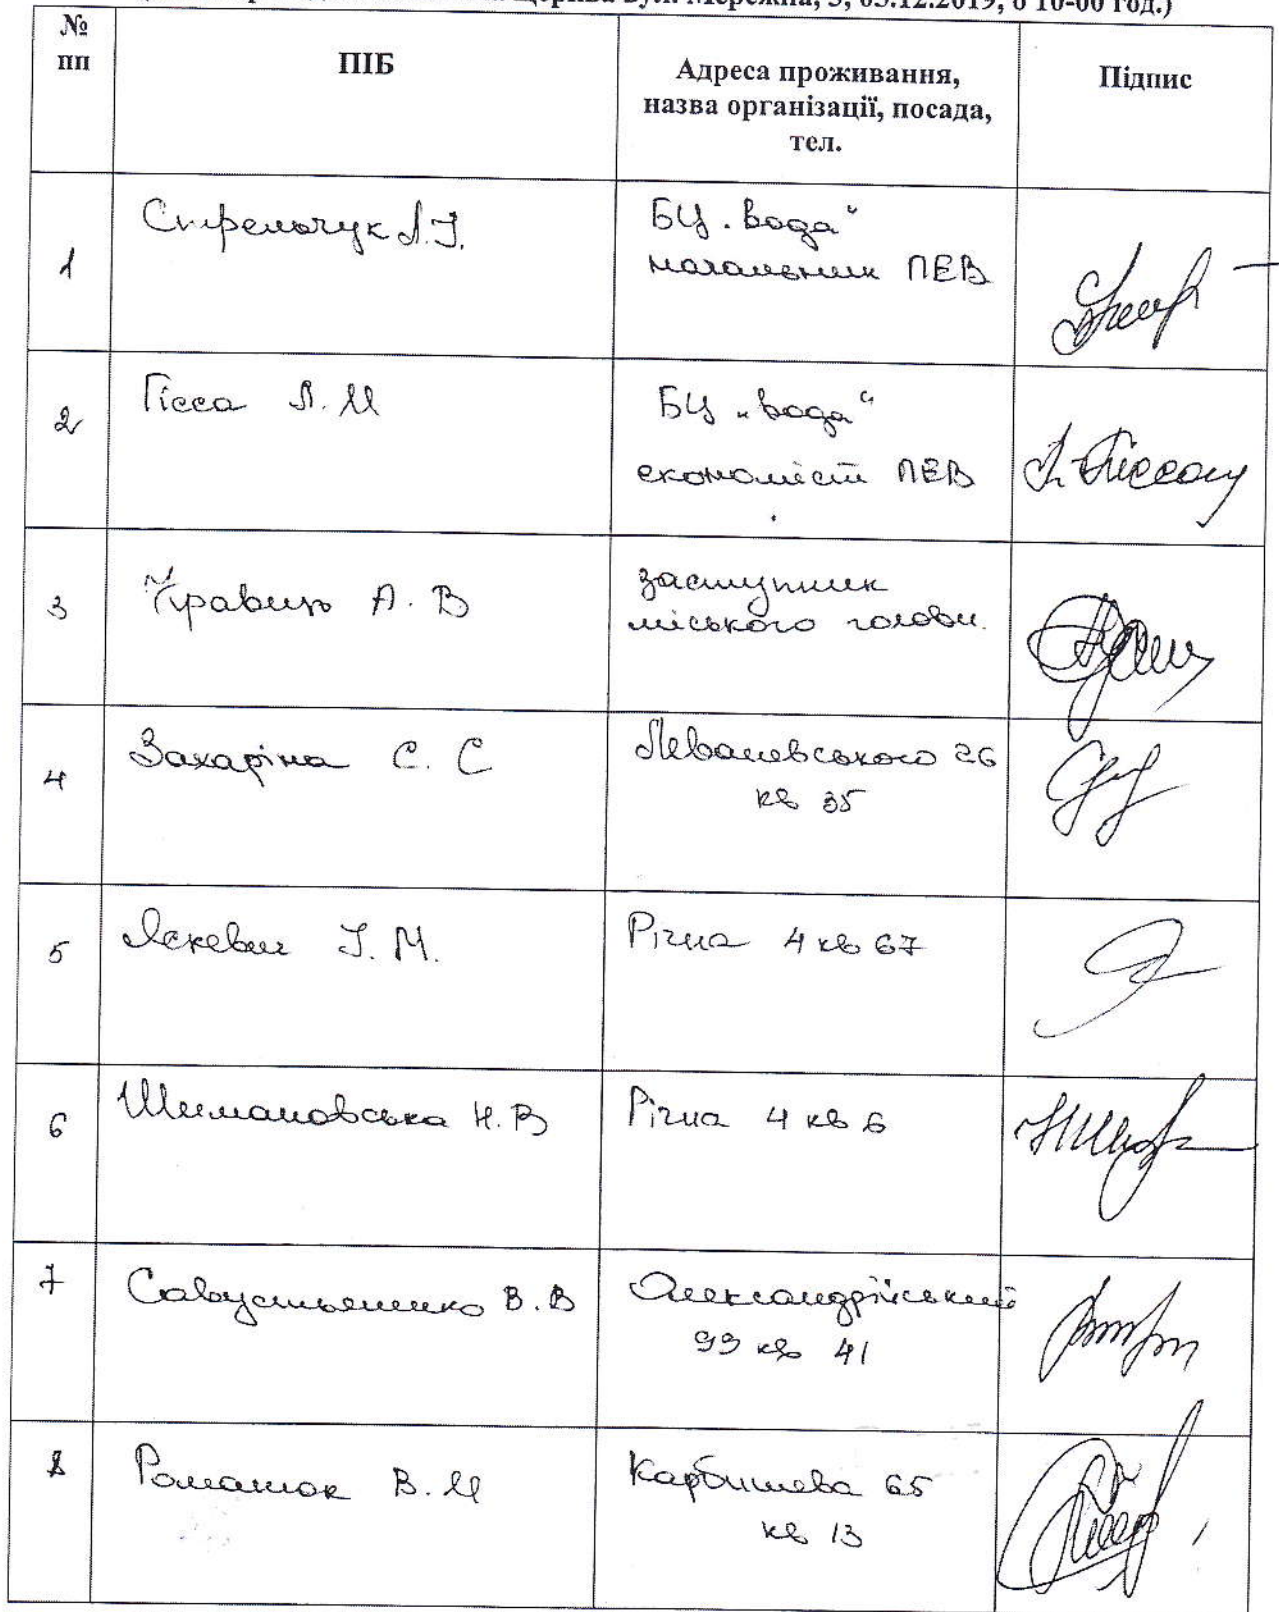 вул. Мережна, 3, 03.12.2019, о 10-00 год.)
№ пп
ПІБ
Адреса проживання,
назва організації, посада,
тел.
Підпис
1
Стрельчук Л.І.
БЦ "Вода"
начальник ПЕВ
2
Гісса Л. М
БЦ „Вода“
економіст ПЕВ
3
Кравець А. В
заступник
міського голови.
4
Захаріна С. С
Леваневського 26
кв 35
5
Яскевич І. М.
Річна 4 кв 67
6
Шимановська Н. В
Річна 4 кв 6
7
Савустьяненко В. В
Олександрійський
99 кв 41
8
Романюк В. М
Карбишева 65
кв 13